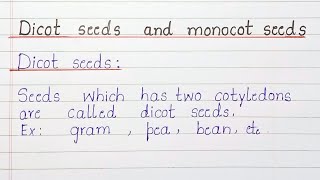 Dicot seeds and monocot seeds
Dicot seeds:
Seeds which has two cotyledons
are called dicot seeds.
Ex: gram, pea, bean, etc.